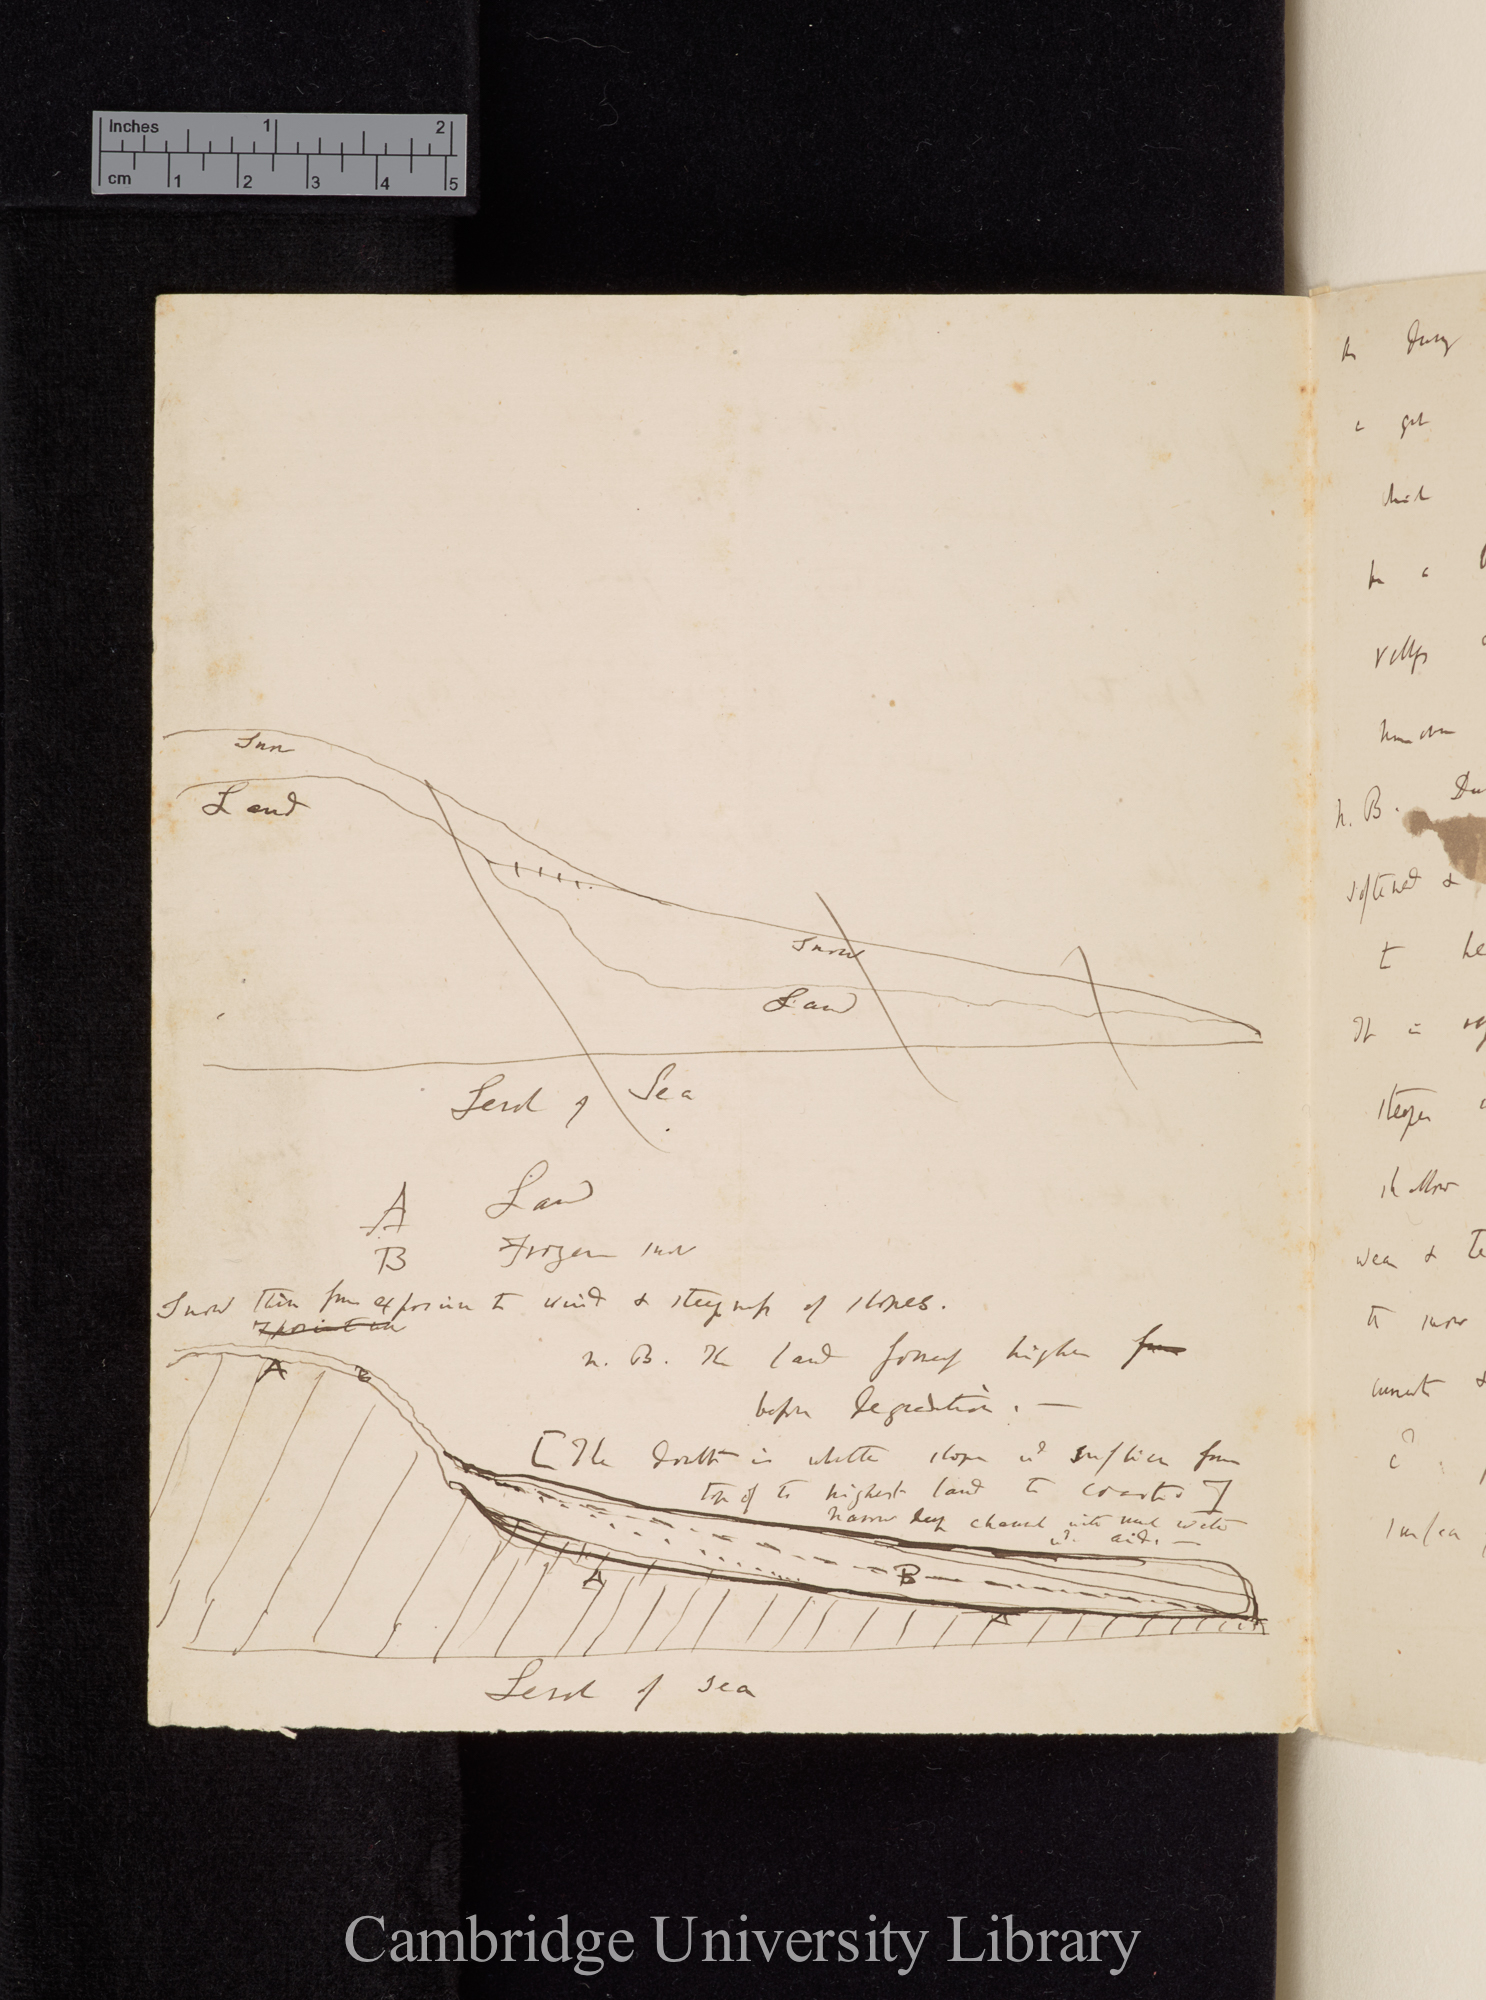 Inches 1 2
cm 1 2 3 4 5
Snow
Land
Snow
Land
Level of Sea
A Land
B Frozen snow
Snow thin from exposure to wind & steepness of slopes.
A B
N. B. The land formerly higher from
before degradation. —
[The doubt is whether slope wd suffice from
top of to highest land to coasts]
Narrow deep channel into wh water
wd. aid. —
B
A
A
Level of sea
in
a
which
for a
N. B.
softened &
to
It is
steeper
shallow
wear &
to snow
currents &
Cambridge University Library